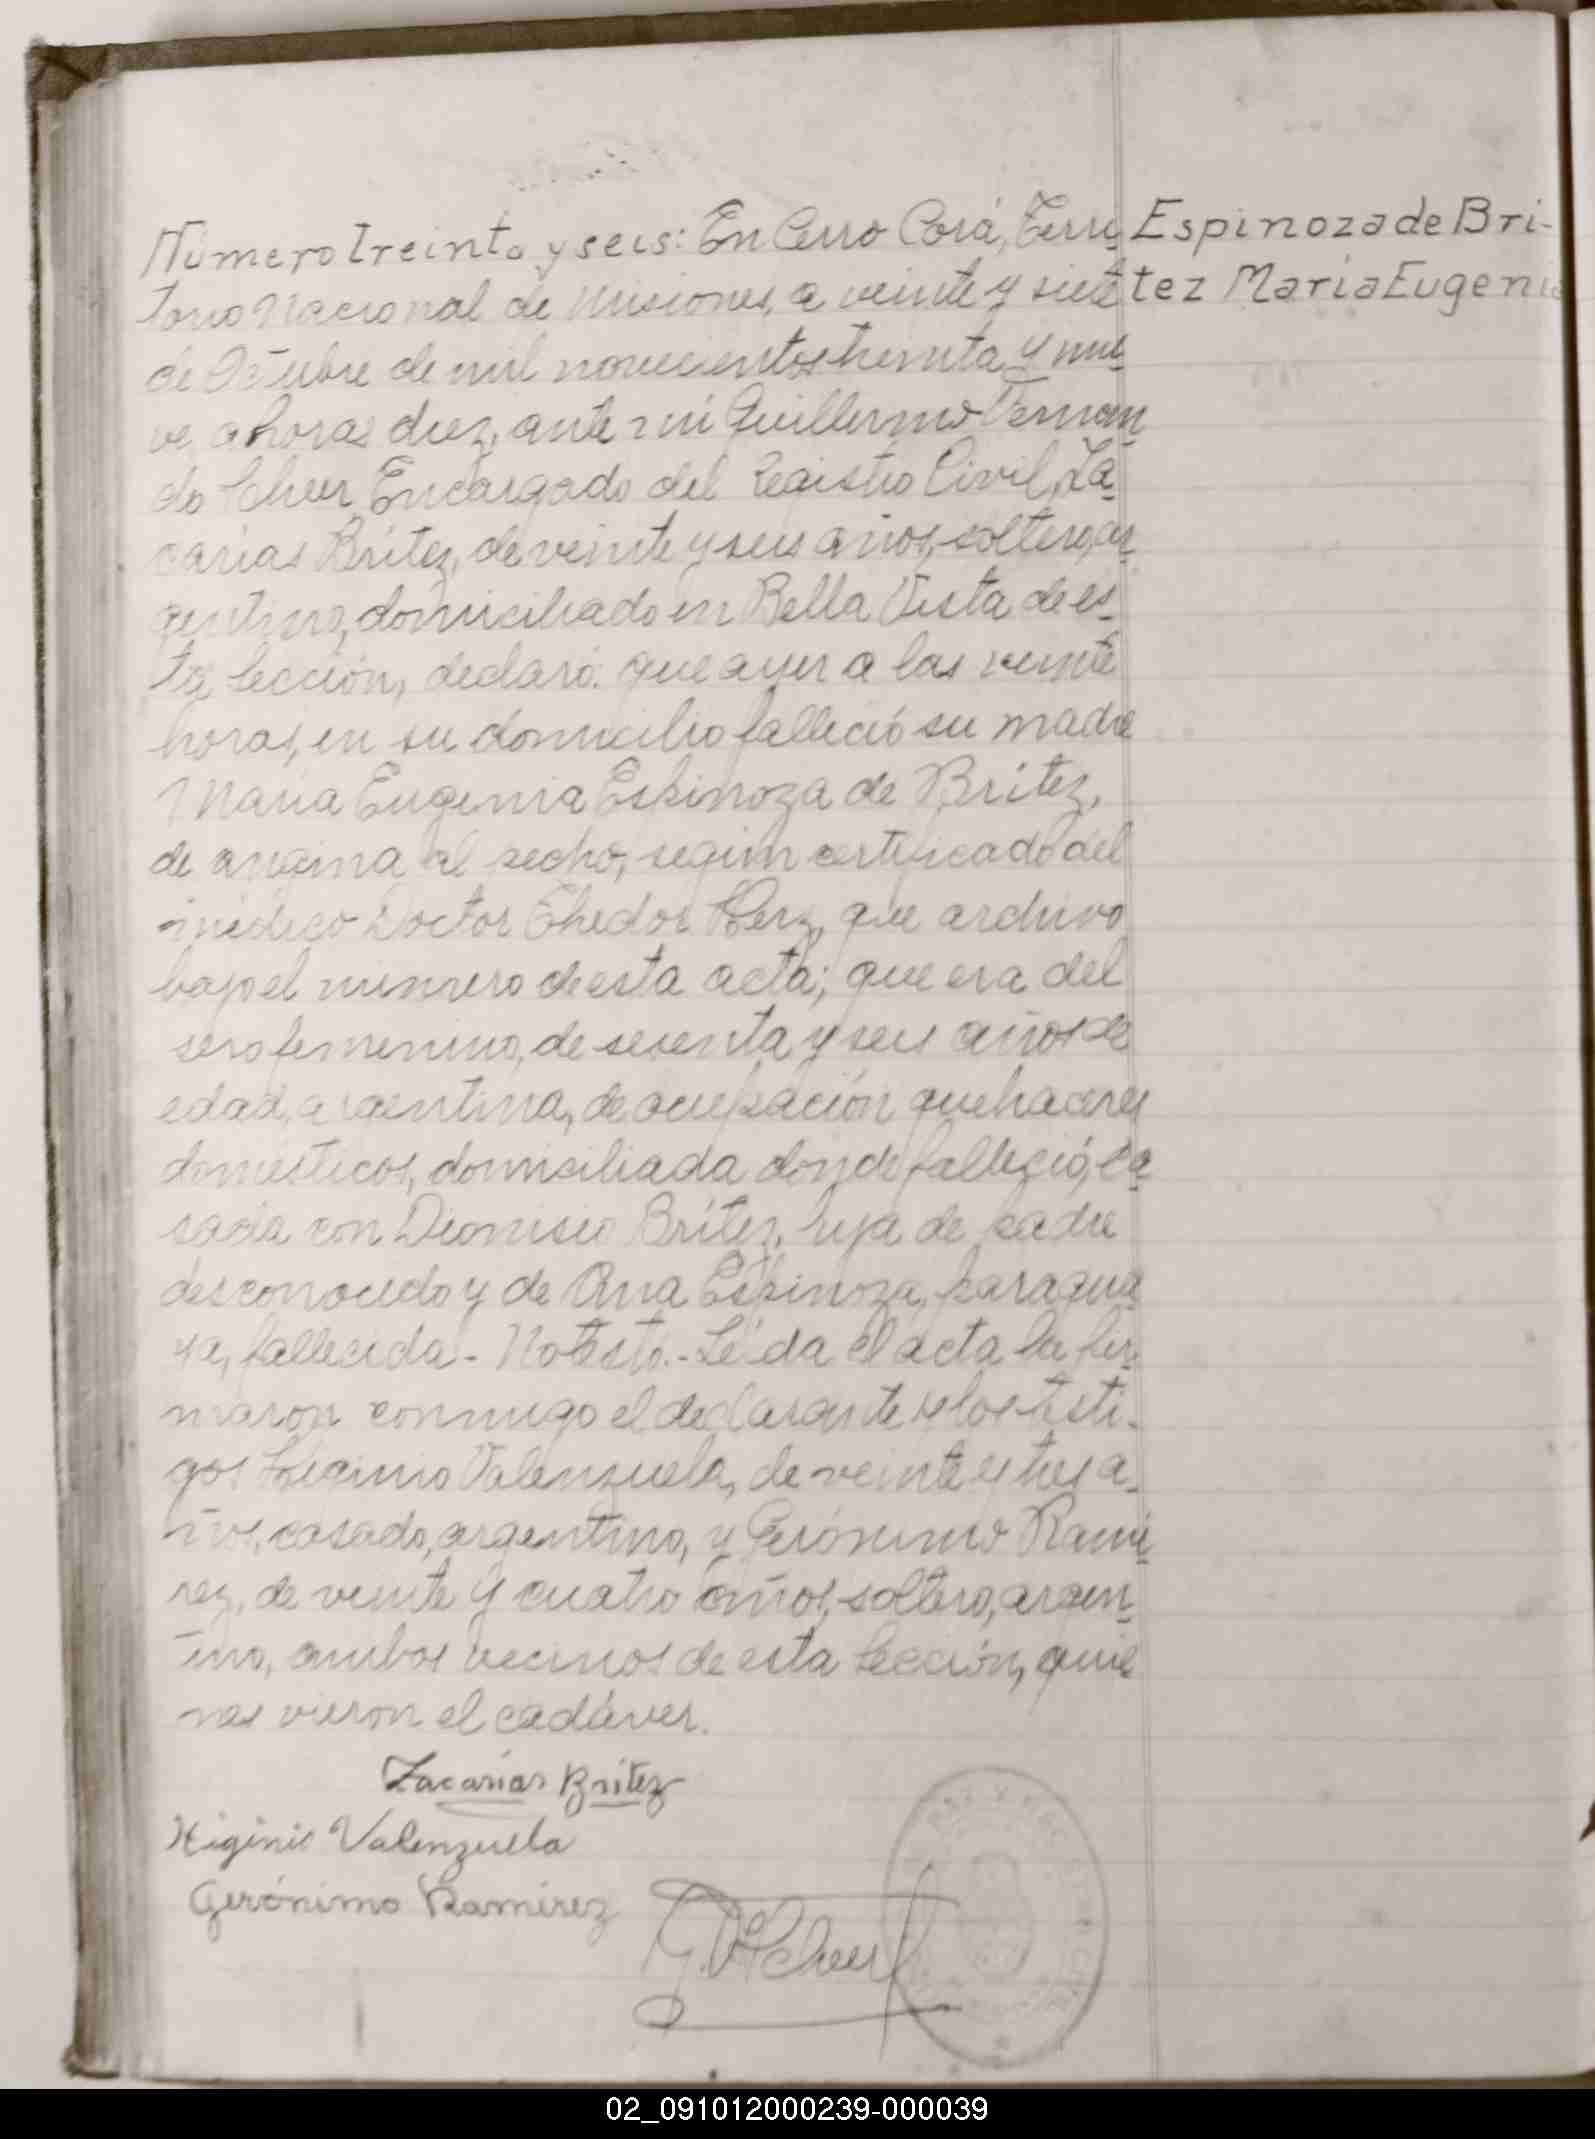 Número treinta y seis: En Cerro Corá, Terri_
torio Nacional de Misiones, a veinte y siete
de Octubre de mil novecientos treinta y nue_
ve, a horas diez, ante mi Guillermo Fernan_
do Scheer Encargado del Registro Civil, Za_
carias Britez, de veinte y seis años, soltero, ar_
gentino, domiciliado en Bella Vista de es_
ta Sección, declaró: que ayer a las veinte
horas, en su domicilio falleció su madre
Maria Eugenia Espinoza de Britez,
de angina al pecho, según certificado del
médico Doctor que archivo
bajo el número de esta acta; que era del
sexo femenino, de sesenta y seis años de
edad, argentina, de ocupación quehaceres
domésticos, domiciliada donde falleció, ca_
sada con Dionisio Britez, hija de padre
desconocido y de Ana Espinoza, paragua_
ya, fallecida - No testó.- Leida el acta la fir_
maron conmigo el declarante y los testi_
gos Higinio Valenzuela, de veinte y tres a_
ños, casado, argentino, y Gerónimo Rami_
rez, de veinte y cuatro años, soltero, argen_
tino, ambos vecinos de esta Sección, quie_
nes vieron el cadáver.
Espinoza de Bri-
tez Maria Eugenia
Zacarias Britez
Higinio Valenzuela
Gerónimo Ramírez
G. F. Scheer
02_091012000239-000039